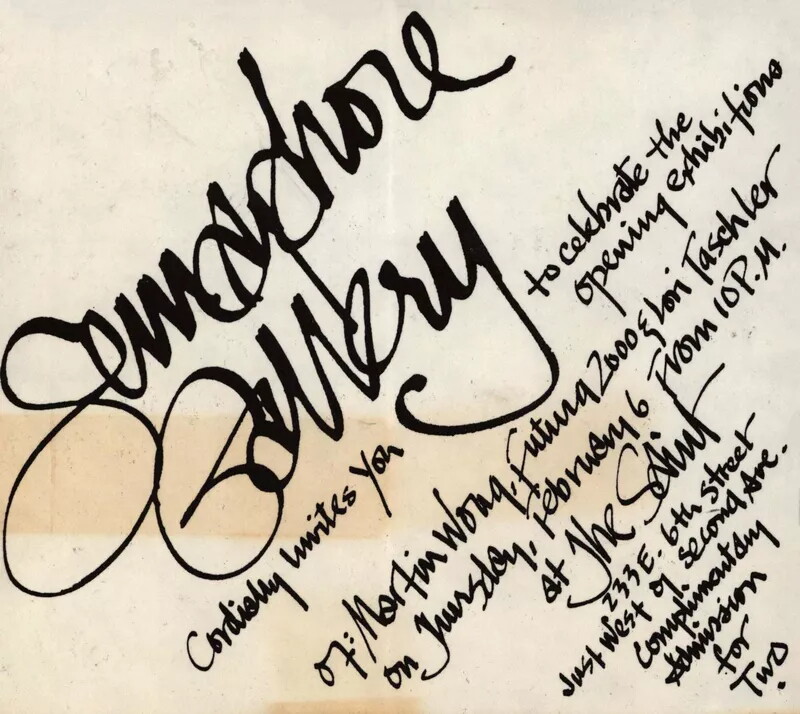 Semaphore
Gallery
Cordially Invites You
to celebrate the
opening exhibitions
of: Martin Wong, Futura 2000 & Lori Taschler
on Thursday, February 6 From 10 P.M.
at The Saint
233 E. 6th Street
Just West of Second Ave.
Complimentary
Admission
for
Two